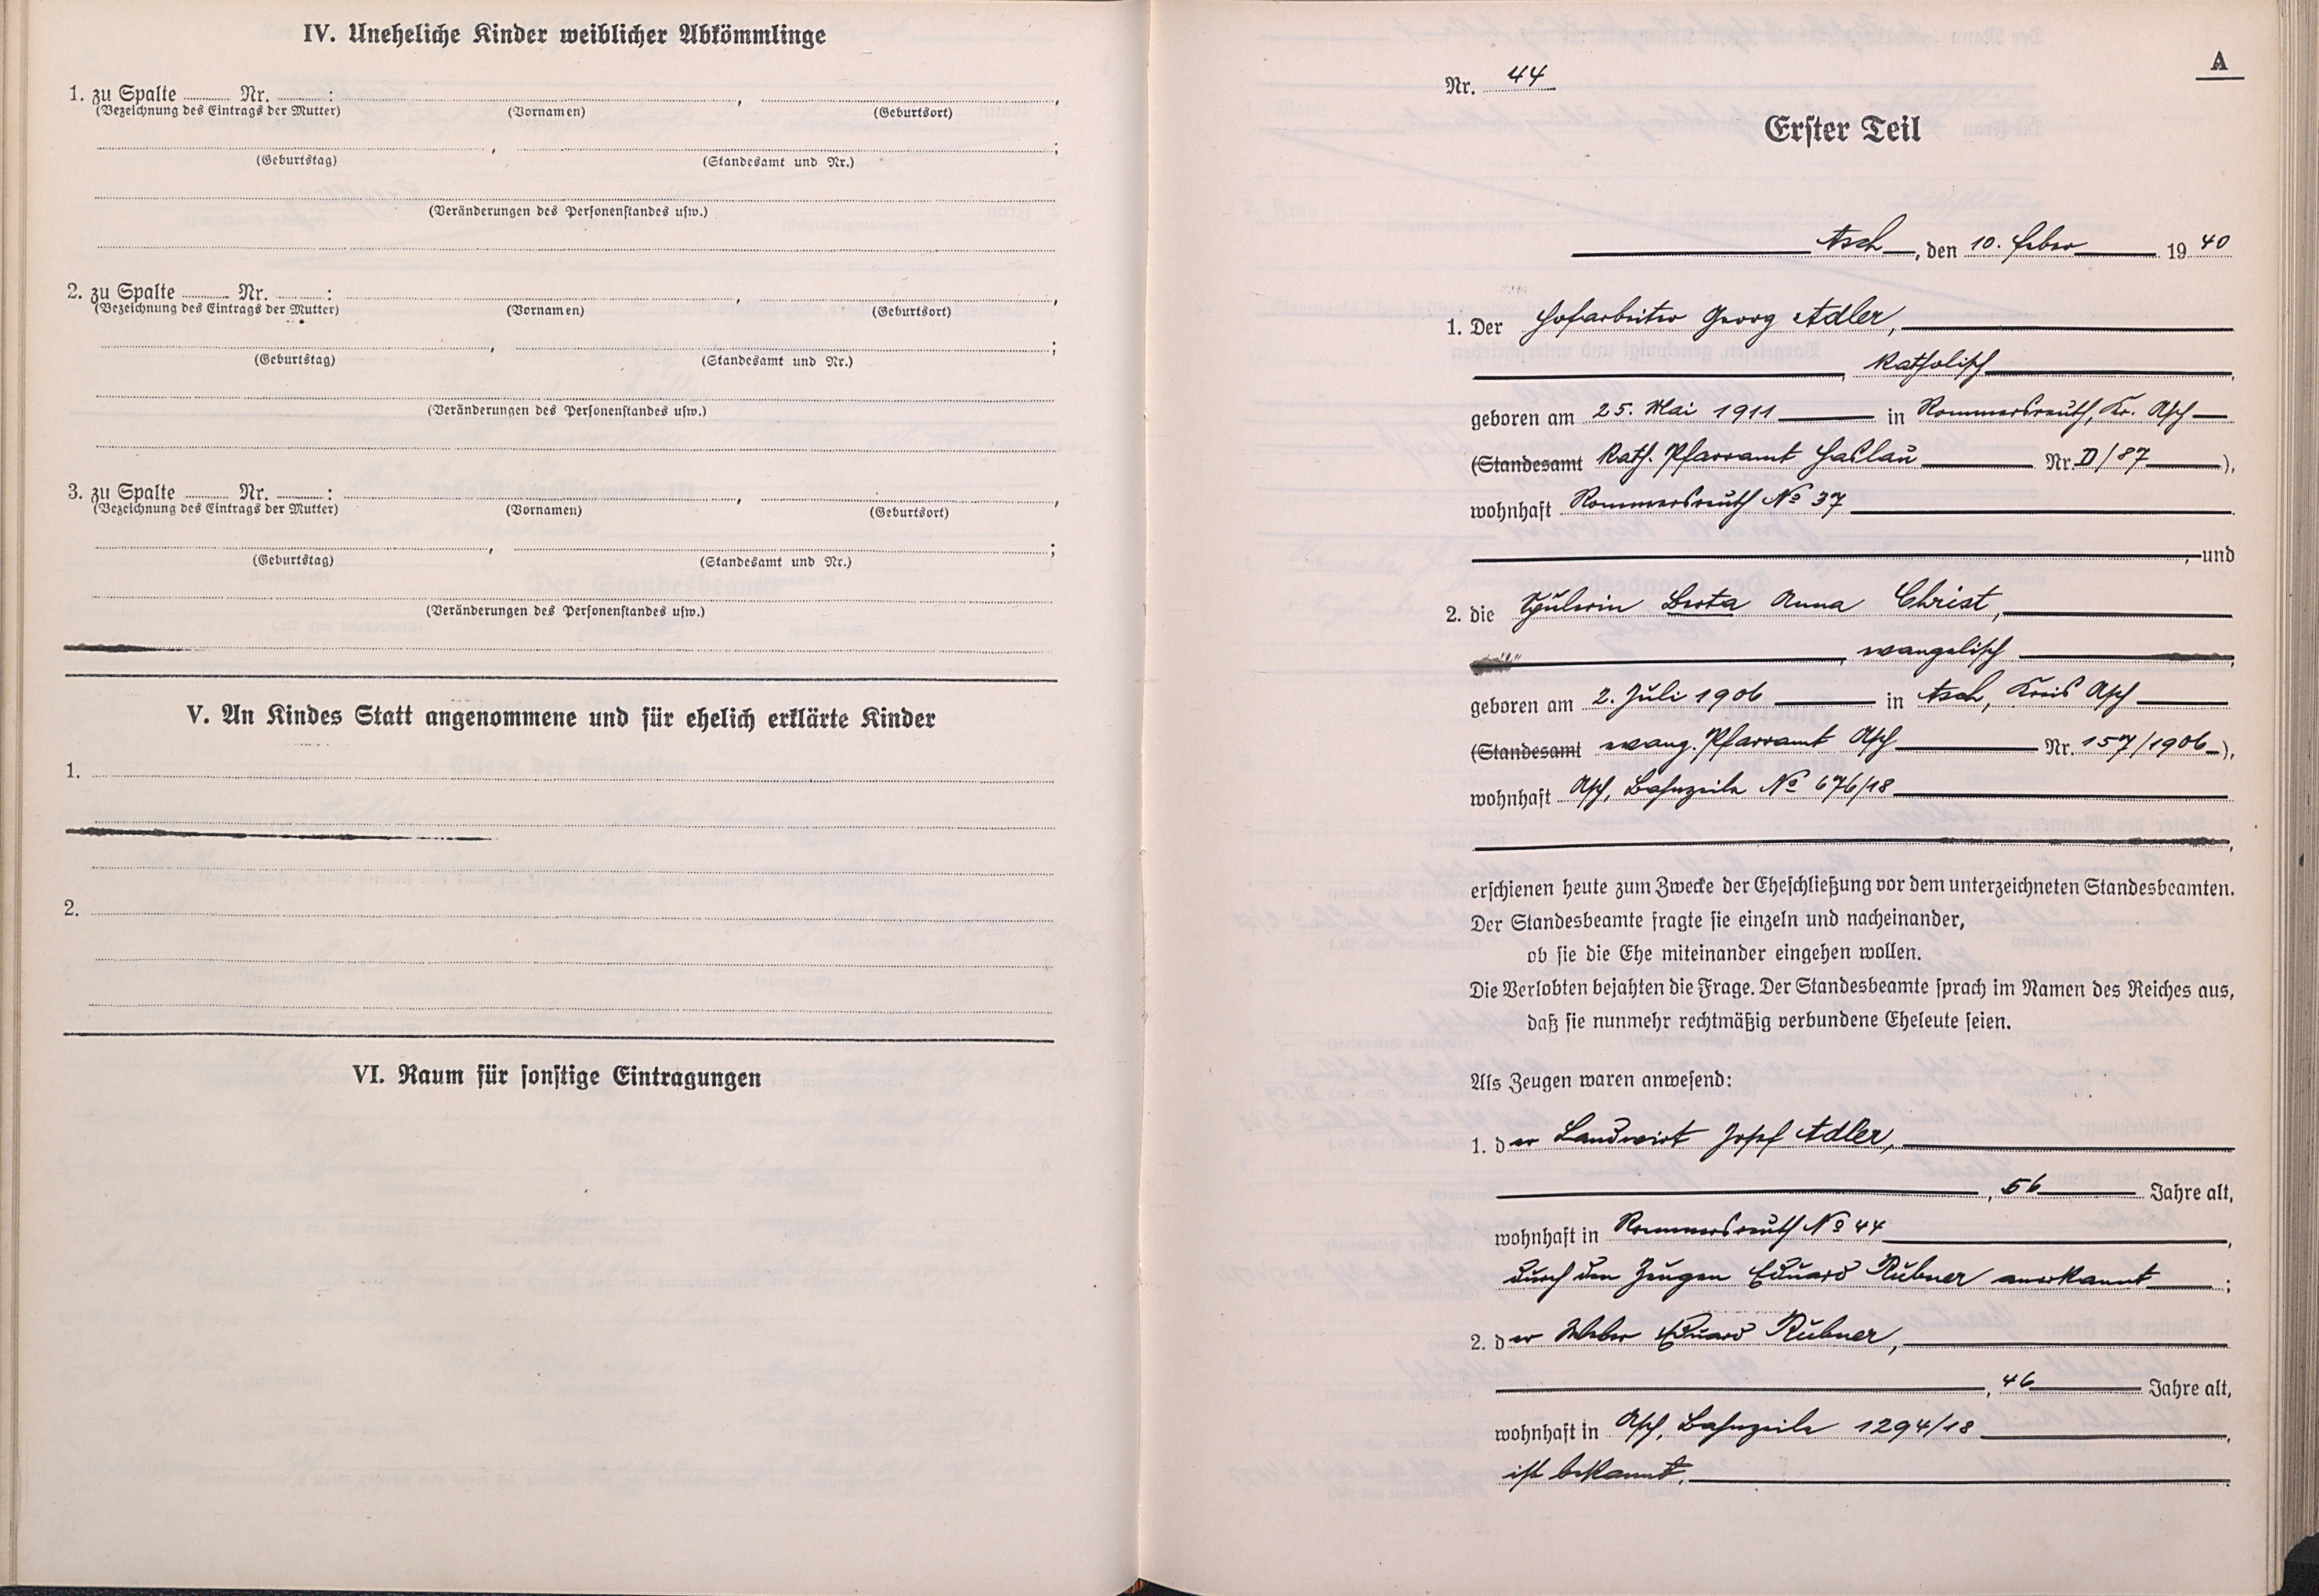 IV. Uneheliche Kinder weiblicher Abkömmlinge
1. zu Spalte ........ Nr. ........ : , ,
(Bezeichnung des Eintrags der Mutter) (Vornamen) (Geburtsort)
, ;
(Geburtstag) (Standesamt und Nr.)
(Veränderungen des Personenstandes usw.)
2. zu Spalte ........ Nr. ........ : , ,
(Bezeichnung des Eintrags der Mutter) (Vornamen) (Geburtsort)
, ;
(Geburtstag) (Standesamt und Nr.)
(Veränderungen des Personenstandes usw.)
3. zu Spalte ........ Nr. ........ : , ,
(Bezeichnung des Eintrags der Mutter) (Vornamen) (Geburtsort)
, ;
(Geburtstag) (Standesamt und Nr.)
(Veränderungen des Personenstandes usw.)
V. An Kindes Statt angenommene und für ehelich erklärte Kinder
1.
2.
VI. Raum für sonstige Eintragungen
A
Nr. 44
Erster Teil
Asch, den 10. Feber 1940
1. Der Hofarbeiter Georg Adler,
, katholisch,
geboren am 25. Mai 1911 in Rommersreuth, Kr. Asch
(Standesamt Kath. Pfarramt Haslau Nr. D/87),
wohnhaft Rommersreuth No 37
, und
2. die Spulerin Berta Anna Christ,
, evangelisch,
geboren am 2. Juli 1906 in Asch, Kreis Asch
(Standesamt evang. Pfarramt Asch Nr. 157/1906),
wohnhaft Asch, Bahnzeile No 676/18
,
erschienen heute zum Zwecke der Eheschließung vor dem unterzeichneten Standesbeamten.
Der Standesbeamte fragte sie einzeln und nacheinander,
ob sie die Ehe miteinander eingehen wollen.
Die Verlobten bejahten die Frage. Der Standesbeamte sprach im Namen des Reiches aus,
daß sie nunmehr rechtmäßig verbundene Eheleute seien.
Als Zeugen waren anwesend:
1. der Landwirt Josef Adler,
, 56 Jahre alt,
wohnhaft in Rommersreuth No 44,
durch den Zeugen Eduard Rubner anerkannt;
2. der Weber Eduard Rubner,
, 46 Jahre alt,
wohnhaft in Asch, Bahnzeile 1294/18,
ist bekannt.